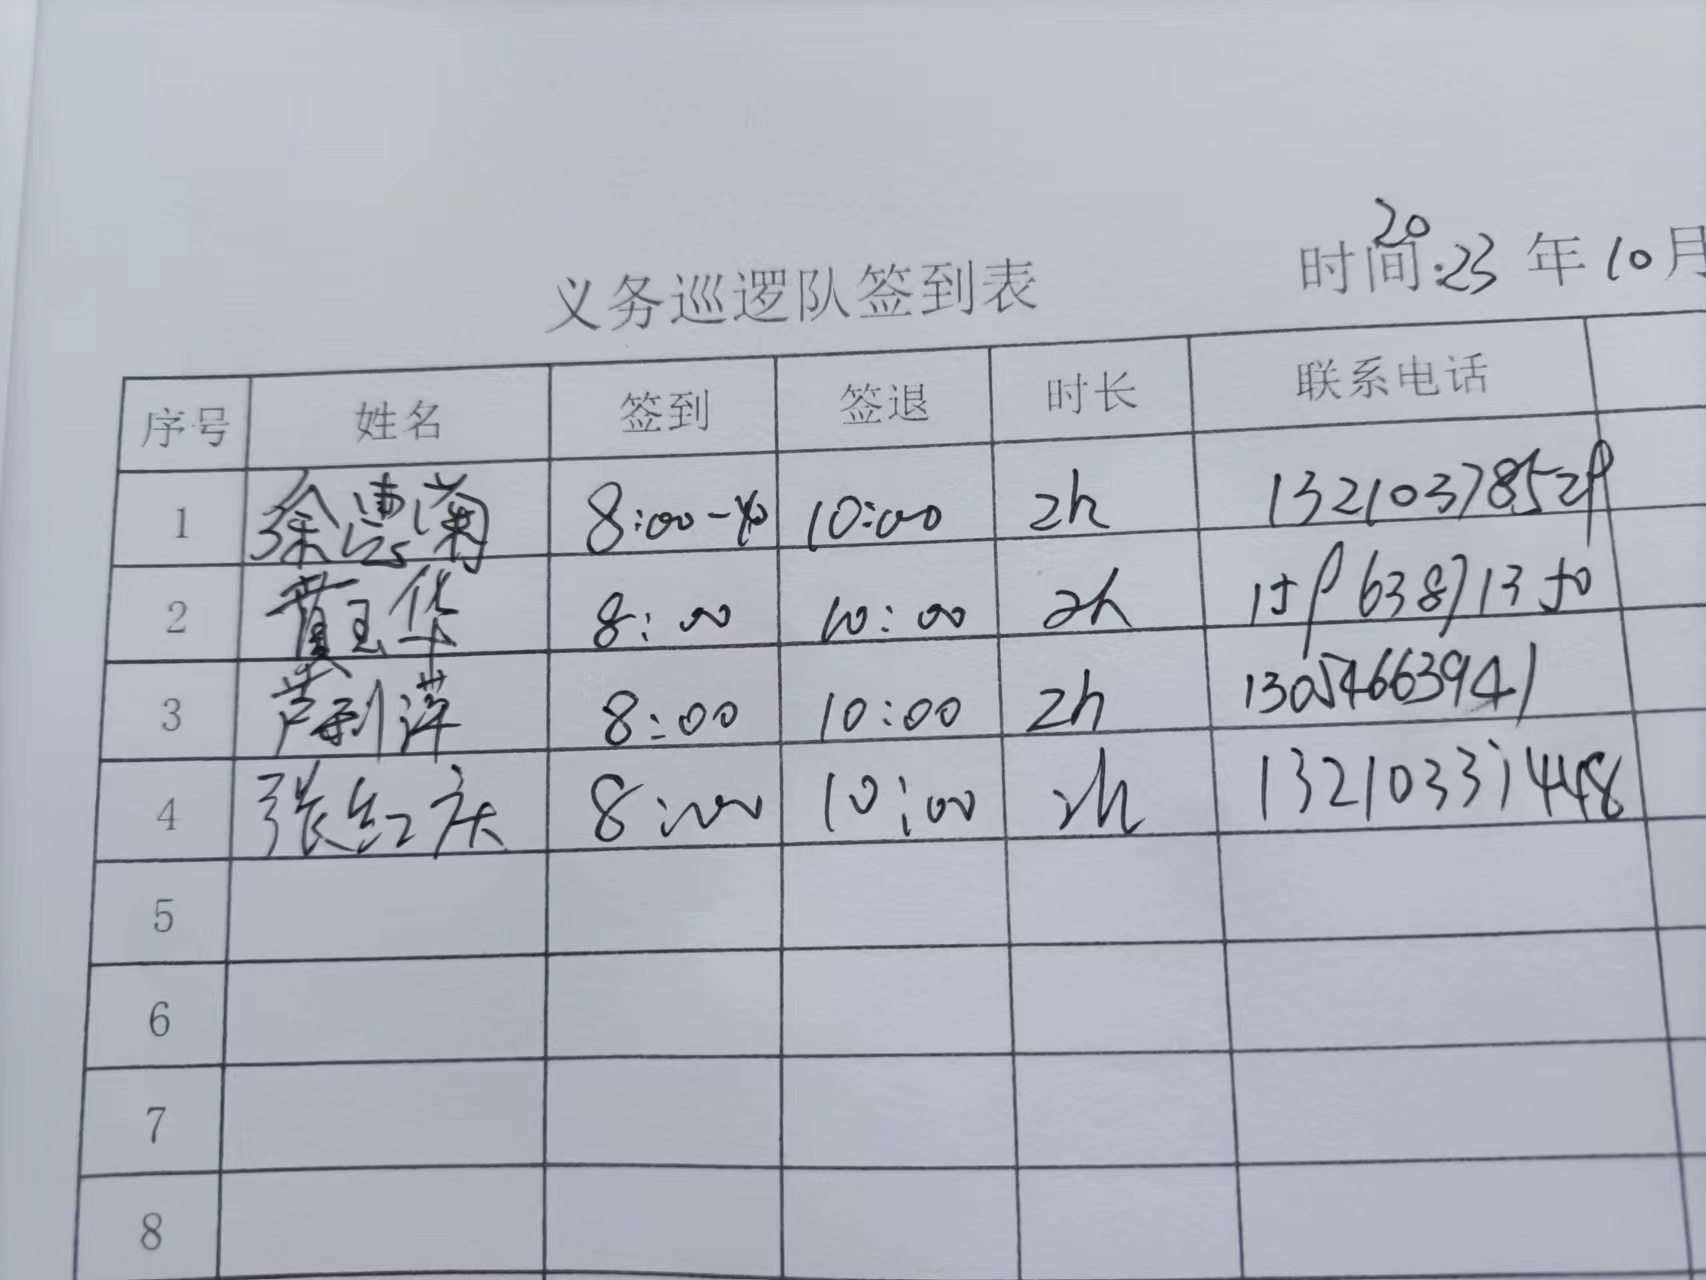 20
时间:23 年 10 月
义务巡逻队签到表
序号 姓名 签到 签退 时长 联系电话
1 徐惠菊 8:00- 10:00 2h 13210378529
2 黄玉华 8:00 10:00 2h 15963871350
3 芦利萍 8:00 10:00 2h 13054663941
4 张红庆 8:00 10:00 2h 1321033 448
5
6
7
8